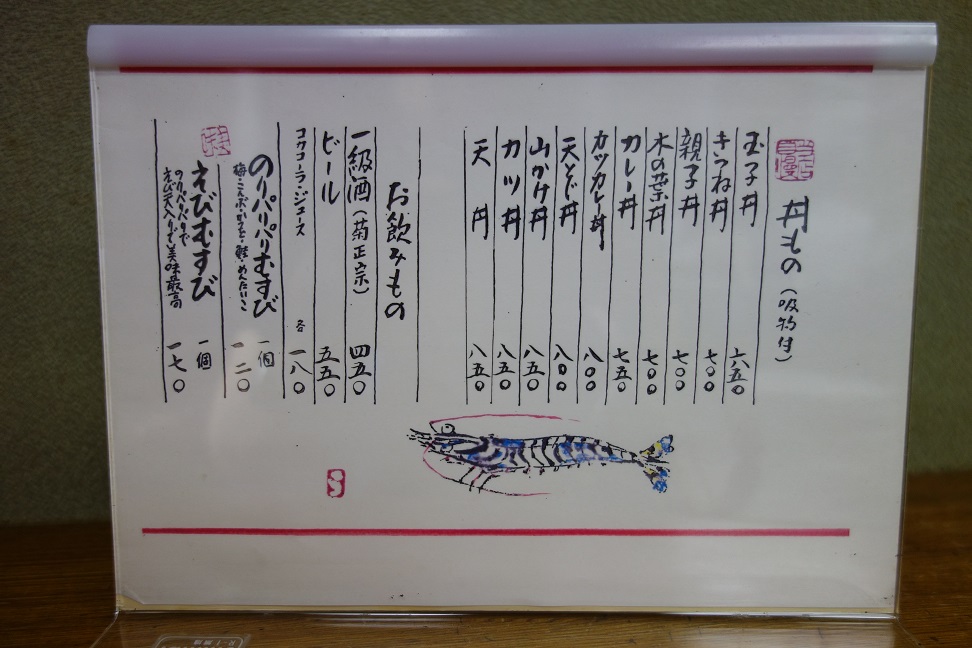 当店自慢
丼もの（吸物付）
玉子丼 六五〇
きつね丼 七〇〇
親子丼 七〇〇
木の葉丼 七〇〇
カレー丼 七五〇
カツカレー丼 八〇〇
天とじ丼 八〇〇
山かけ丼 八五〇
カツ丼 八五〇
天丼 八五〇
お飲みもの
一級酒（菊正宗） 四五〇
ビール 五五〇
コカコーラ・ジュース 各 一八〇
のりパリパリむすび 一個
梅・こんぶ・かつを・鮭・めんたいこ 一二〇
えびむすび 一個
のりパリパリで
えび天入りで美味最高 一七〇